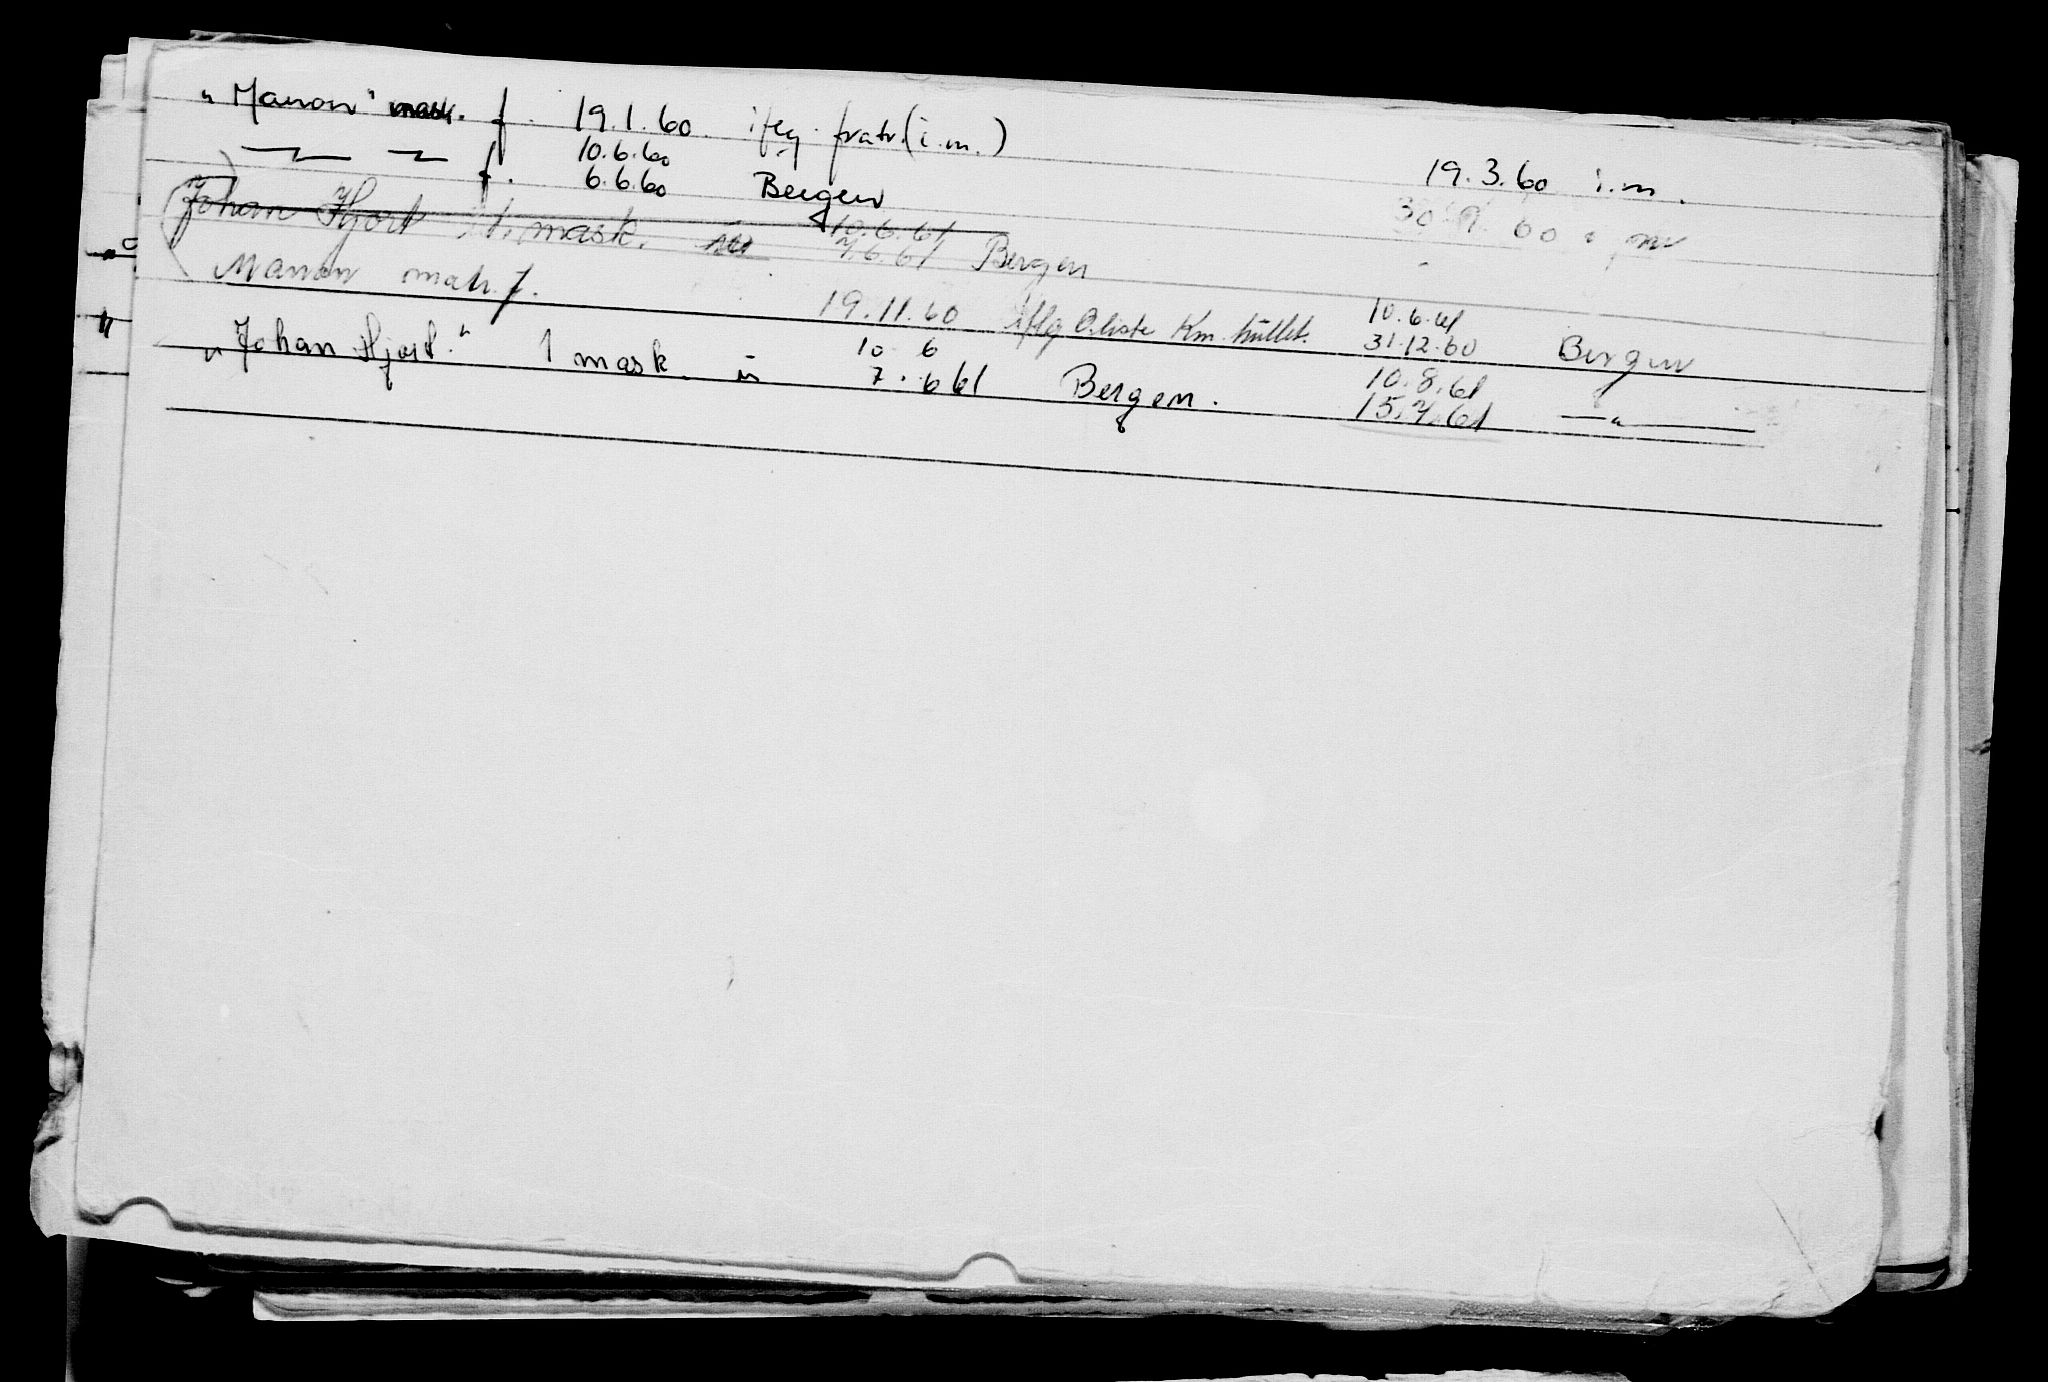 "Manon" mask. f. 19.1.60. iflg. fratr. (i.m.) 19.3.60 i.m.
f. 10.6.60 6.6.60 Bergen 30 9. 60 i m
Johan Hjort 1. mask. 10.6.61 7.6.61 Bergen
Manon matr. f. 19.11.60 iflg O.liste Km. hullet. 10.6.61 31.12.60 Bergen
"Johan Hjort." 1 mask. 10 6 7.6 61 Bergen. 10.8.61 15.7.61 —"—